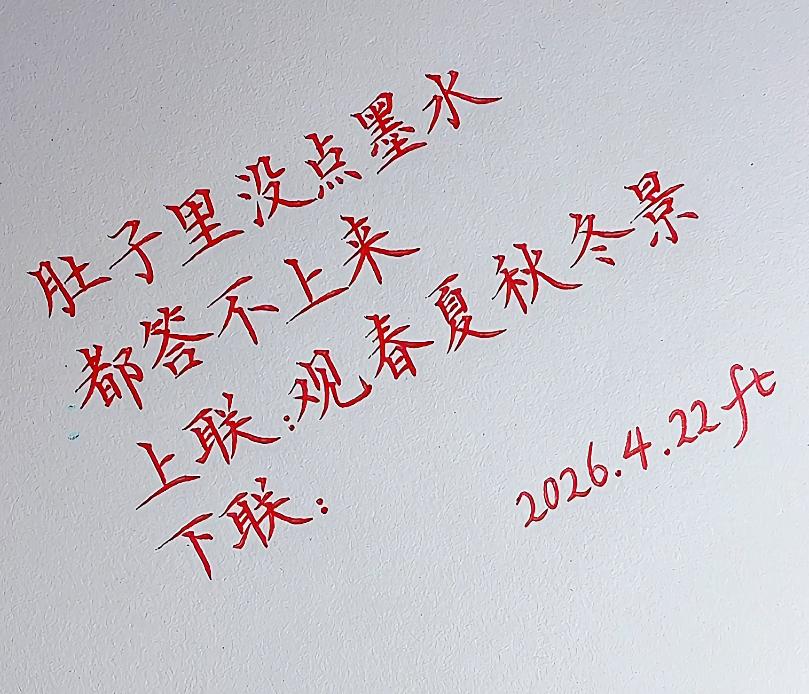 肚子里没点墨水
都答不上来
上联:观春夏秋冬景
下联:
2026.4.22ft